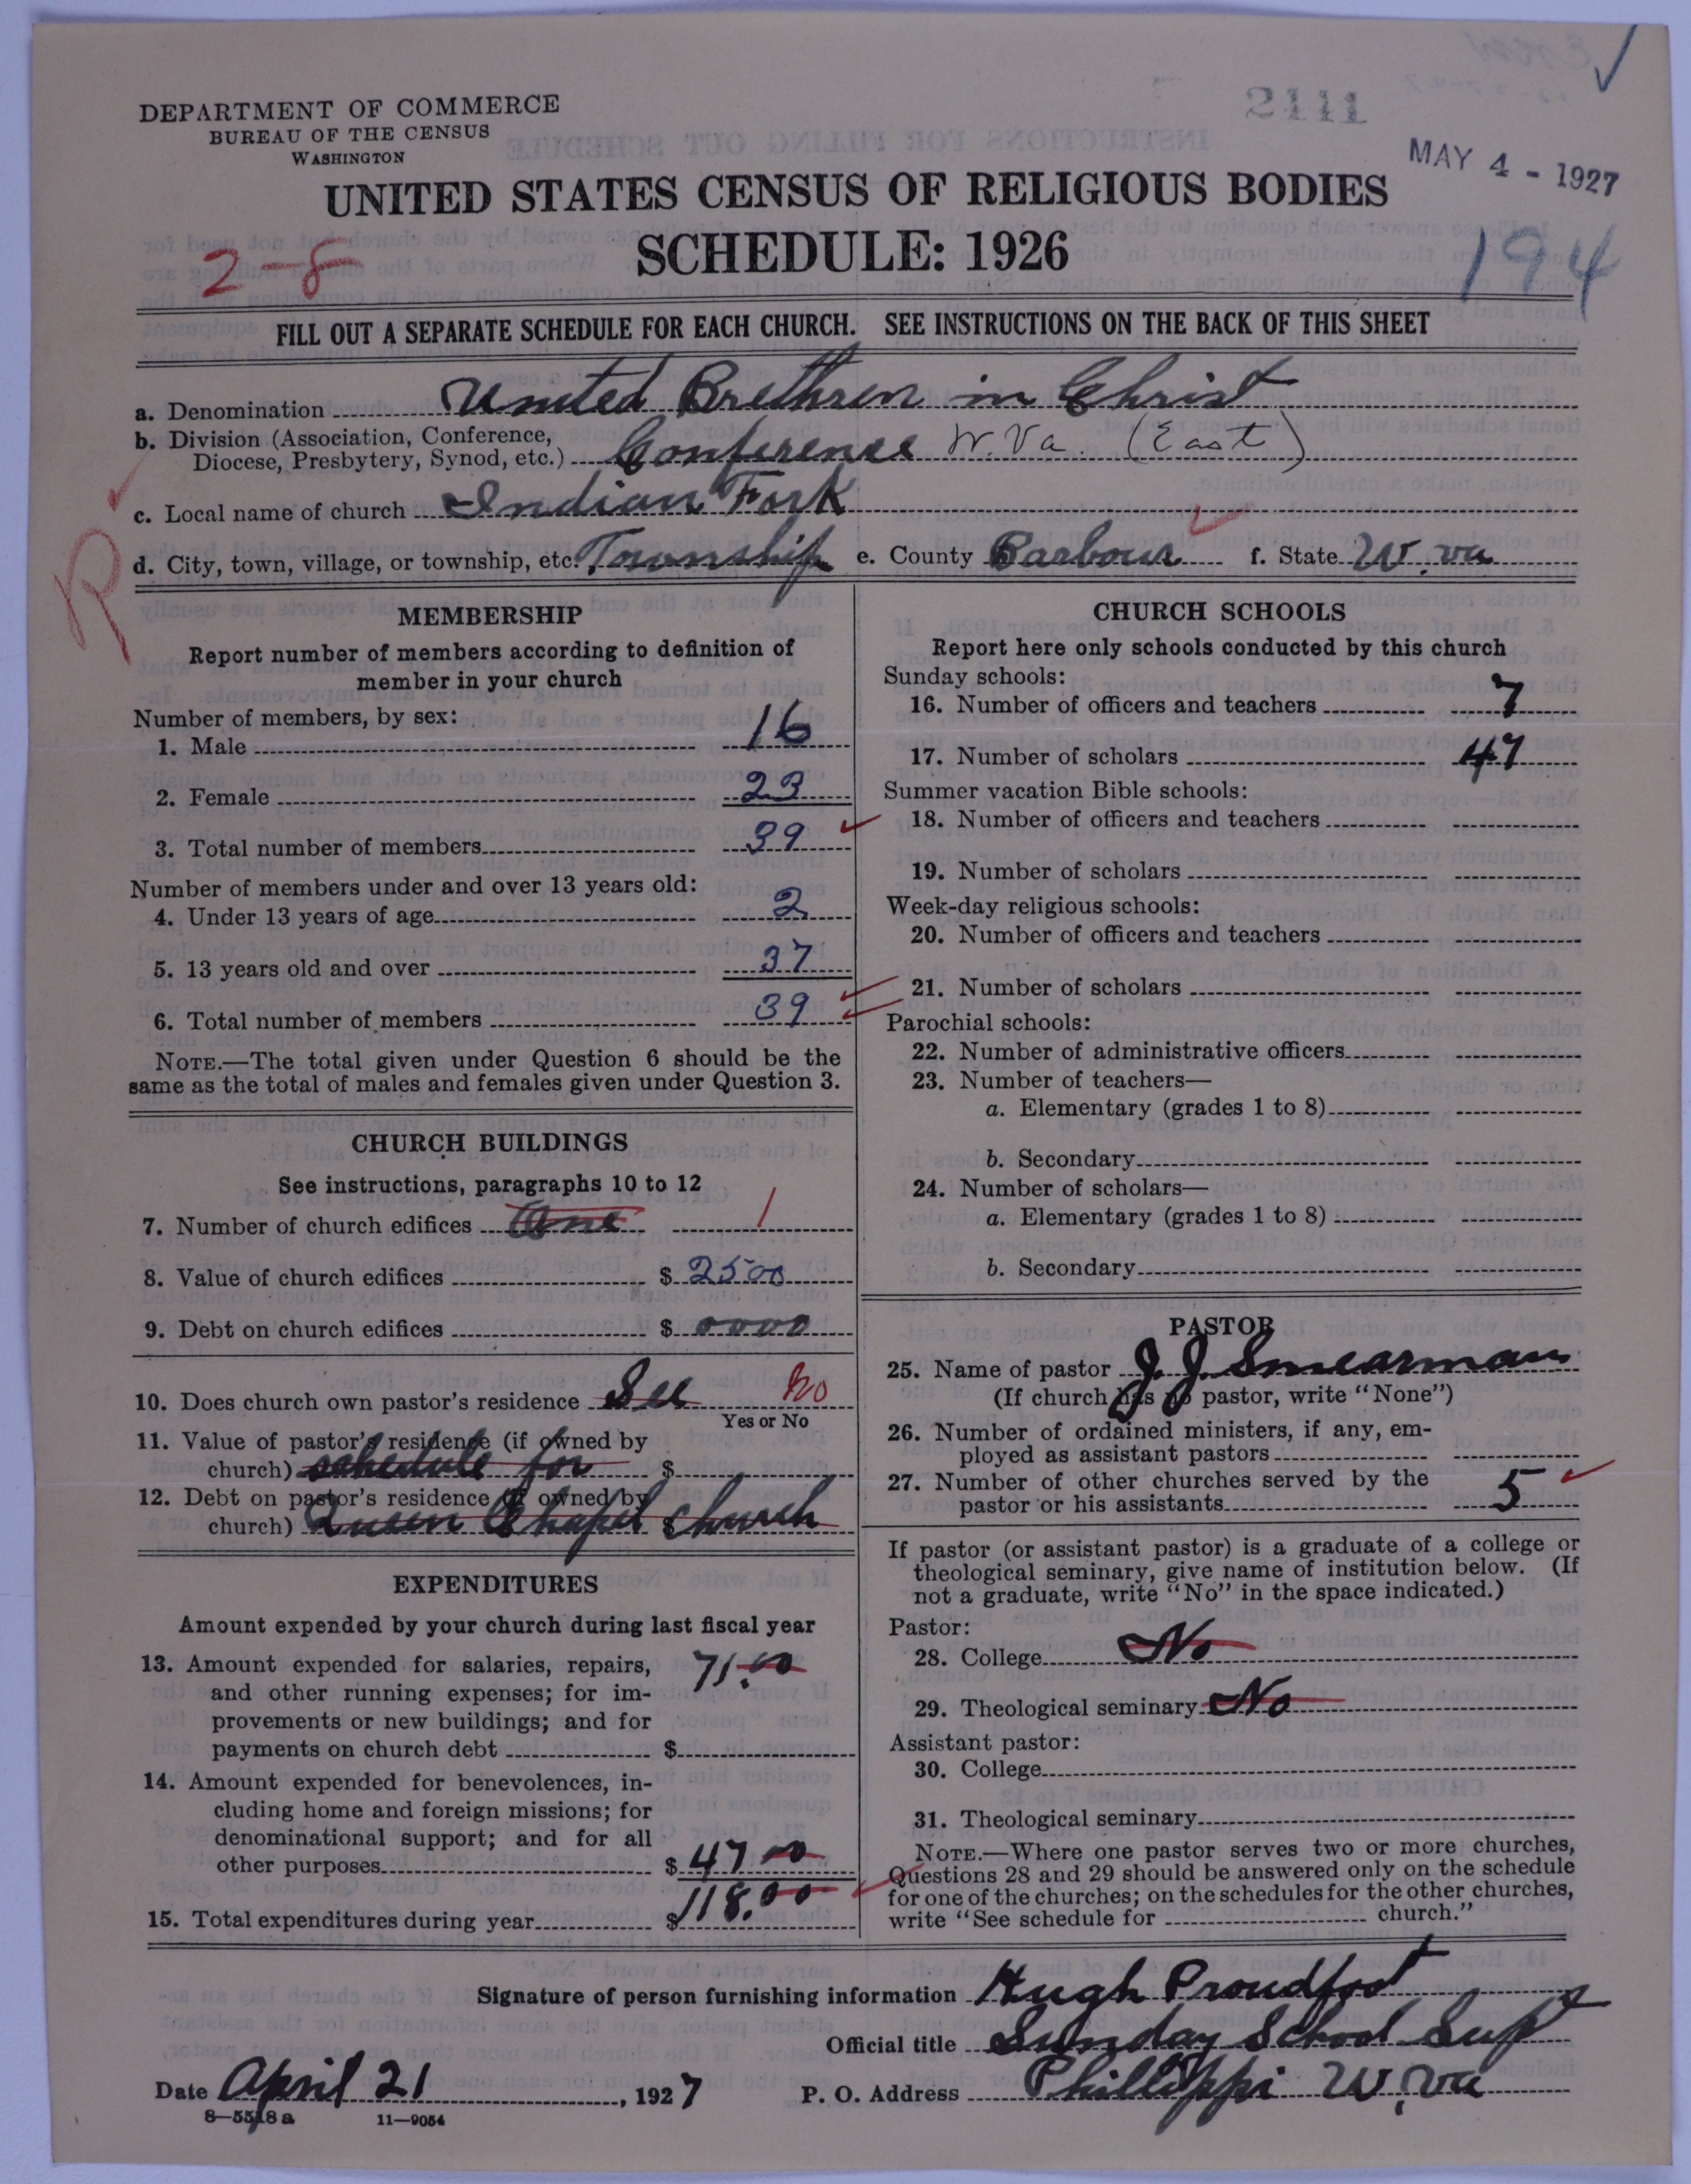 2111
MAY 4 - 1927
DEPARTMENT OF COMMERCE
BUREAU OF THE CENSUS
WASHINGTON
UNITED STATES CENSUS OF RELIGIOUS BODIES
SCHEDULE: 1926
2-8
194
FILL OUT A SEPARATE SCHEDULE FOR EACH CHURCH. SEE INSTRUCTIONS ON THE BACK OF THIS SHEET
a. Denomination United Brethren in Christ
b. Division (Association, Conference,
Diocese, Presbytery, Synod, etc.) Conference W. Va. (East)
c. Local name of church Indian Fork
d. City, town, village, or township, etc. Township e. County Barbour f. State W. va
R
MEMBERSHIP
Report number of members according to definition of
member in your church
Number of members, by sex:
1. Male 16
2. Female 23
3. Total number of members 39
Number of members under and over 13 years old:
4. Under 13 years of age 2
5. 13 years old and over 37
6. Total number of members 39
NOTE.—The total given under Question 6 should be the
same as the total of males and females given under Question 3.
CHURCH BUILDINGS
See instructions, paragraphs 10 to 12
7. Number of church edifices One 1
8. Value of church edifices $ 2500
9. Debt on church edifices $ 0000
10. Does church own pastor's residence See No
Yes or No
11. Value of pastor's residence (if owned by
church) schedule for $
12. Debt on pastor's residence (if owned by
church) Queen Chapel $ church
EXPENDITURES
Amount expended by your church during last fiscal year
13. Amount expended for salaries, repairs, 71.00
and other running expenses; for im-
provements or new buildings; and for
payments on church debt $
14. Amount expended for benevolences, in-
cluding home and foreign missions; for
denominational support; and for all
other purposes $ 47 00
15. Total expenditures during year $ 118.00
CHURCH SCHOOLS
Report here only schools conducted by this church
Sunday schools:
16. Number of officers and teachers 7
17. Number of scholars 47
Summer vacation Bible schools:
18. Number of officers and teachers
19. Number of scholars
Week-day religious schools:
20. Number of officers and teachers
21. Number of scholars
Parochial schools:
22. Number of administrative officers
23. Number of teachers—
a. Elementary (grades 1 to 8)
b. Secondary
24. Number of scholars—
a. Elementary (grades 1 to 8)
b. Secondary
PASTOR
25. Name of pastor J. J. Smearman
(If church has no pastor, write "None")
26. Number of ordained ministers, if any, em-
ployed as assistant pastors
27. Number of other churches served by the
pastor or his assistants 5
If pastor (or assistant pastor) is a graduate of a college or
theological seminary, give name of institution below. (If
not a graduate, write "No" in the space indicated.)
Pastor:
28. College No
29. Theological seminary No
Assistant pastor:
30. College
31. Theological seminary
NOTE.—Where one pastor serves two or more churches,
Questions 28 and 29 should be answered only on the schedule
for one of the churches; on the schedules for the other churches,
write "See schedule for church."
Signature of person furnishing information Hugh Proudfoot
Official title Sunday School Supt
Date April 21, 1927 P. O. Address Phillippi W. va
8—5518a 11—9054